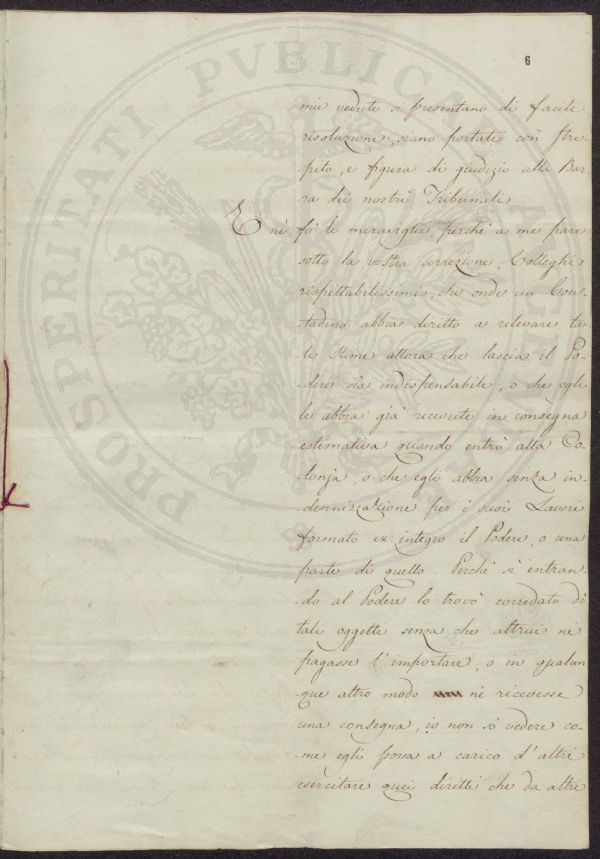 6
PROSPERITATI PVBLICAE
mie vedute si presentano di facile
risoluzione, siano portate con stre
pito, e figura di giudizio alla Bar-
-ra dei nostri Tribunali.
E ne fò le meraviglie, perchè a me pare
sotto la vostra correzione, Colleghi
rispettabilissimi, che onde un Con-
tadino abbia diritto a rilevare ta-
li stime allora che lascia il Po-
-dere sia indispensabile, o che egli
le abbia già ricevute in consegna
estimativa quando entrò alla Co-
-lonja, o che egli abbia senza in-
-dennizzazione per i suoi Lavori
formato ex integro il Podere, o una
parte di quello. Perchè s'è entran-
do al Podere lo trovò corredato di
tali oggetti senza che altrui nè
pagasse l'importare, o in qualun
-que altro modo nè ricevesse
una consegna, io non sò vedere co-
-me egli possa a carico d'altri
esercitare quei diritti che da altri